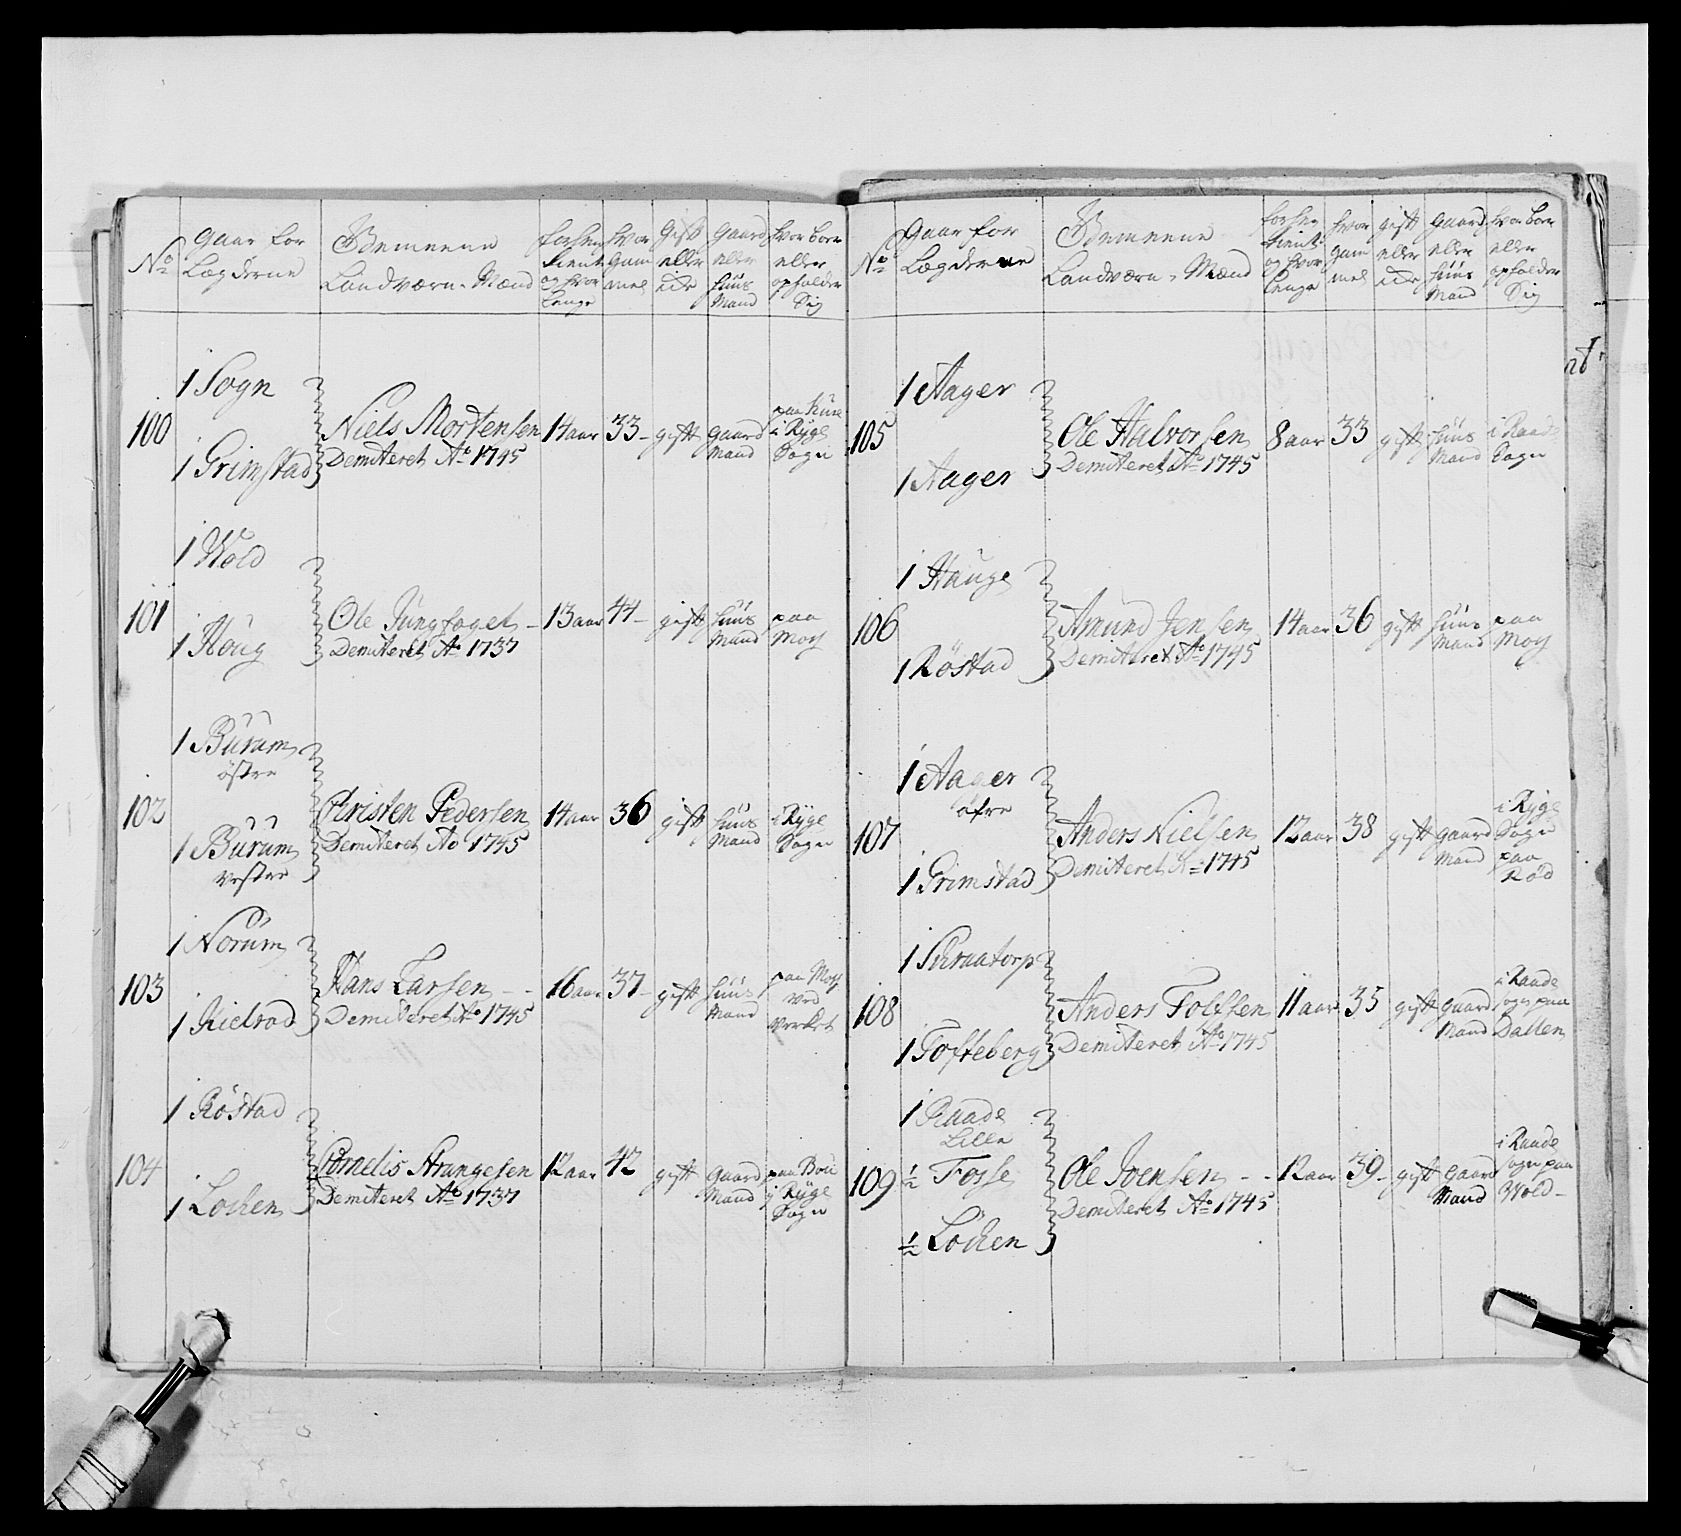 No
Gaar for
Lægderne
Bemeene
Landværn-Mænd
forhen
tient
og hvor
længe
hvor
gam
mel
Gift
eller
ide
Gaard
eller
huus
Mand
hvor boer
eller
opholder
Sig
100
1 Sogn
1 Grimstad
Niels Mortensen
Demiteret Ao 1745
14 aar
33-
gift
gaard
Mand
paa
i Ryge
Sogn
101
1 Wold
1 Houg
Ole Jungfaget -
Demiteret Ao 1737
13 aar
44-
gift
huus
Mand
paa
Moss
102
1 Burum
östre
1 Burum
vestre
Christen Pedersen
Demiteret Ao 1745
14 aar
36
gift
huus
Mand
i Ryge
Sogn
103
1 Norum
1 Kielrød
Hans Larsen - -
Demiteret Ao 1745
16 aar
37-
gift
huus
Mand
paa Moss
ved
Verket
104
1 Röstad
1 Lochen
Cornelis Strangesen
Demiteret Ao 1737
12 aar
42
gift
gaard
Mand
paa
i Ryge
Sogn
No
Gaar for
Lægderne
Bemeene
Landværn-Mænd
forhen
tient
og hvor
længe
hvor
gam
mel
gift
eller
ide
Gaard
eller
huus
Mand
hvor boer
eller
opholder
Sig
105
1 Aager
1 Aager
Ole Halvorsen
Demiteret Ao 1745
8 aar
33
gift
huus
Mand
i Raade
Sogn
106
1 Hauge
1 Röstad
Amund Jensen
Demiteret Ao 1745
14 aar
36
gift
huus
Mand
paa
Moss
107
1 Aager
öfre
1 Grimstad
Anders Nielsen
Demiteret Ao 1745
12 aar
38
gift
gaard
Mand
i Ryge
Sogn
paa
Rød
108
1 Skraatorp
1 Tofteberg
Anders Tollssen
Demiteret Ao 1745
11 aar
35
gift
gaard
Mand
i Raade
sogn paa
Dallen
109
1 Raade
Lille
1/2 Fosse
1/2 Löchen
Ole Joensen - -
Demiteret Ao 1745
12 aar
39-
gift
gaard
Mand
i Raade
sogn paa
Wold-